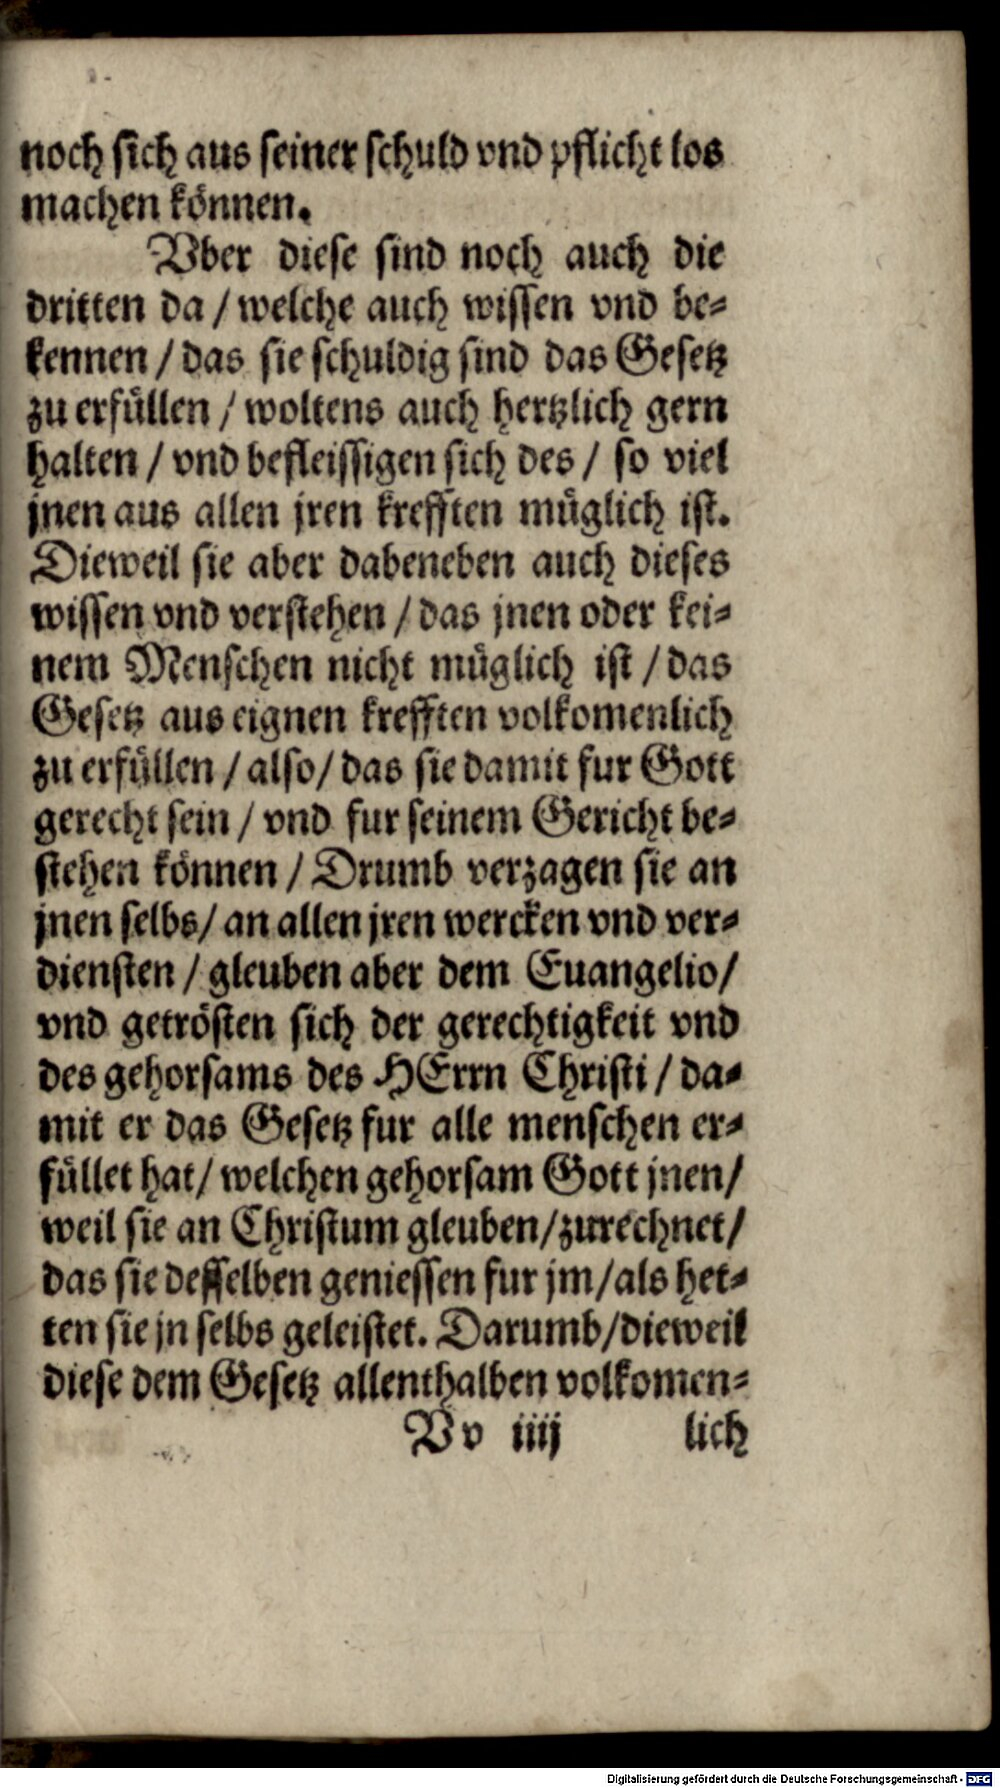 noch sich aus seiner schuld vnd pflicht los
machen können.
Vber diese sind noch auch die
dritten da / welche auch wissen vnd be-
kennen / das sie schuldig sind das Gesetz
zu erfüllen / woltens auch hertzlich gern
halten / vnd befleissigen sich des / so viel
jnen aus allen jren krefften müglich ist.
Dieweil sie aber dabeneben auch dieses
wissen vnd verstehen / das jnen oder kei-
nem Menschen nicht müglich ist / das
Gesetz aus eignen krefften volkomenlich
zu erfüllen / also / das sie damit fur Gott
gerecht sein / vnd fur seinem Gericht be-
stehen können / Drumb verzagen sie an
jnen selbs / an allen jren wercken vnd ver-
diensten / gleuben aber dem Euangelio /
vnd getrösten sich der gerechtigkeit vnd
des gehorsams des HErrn Christi / da-
mit er das Gesetz fur alle menschen er-
füllet hat / welchen gehorsam Gott jnen /
weil sie an Christum gleuben / zurechnet /
das sie desselben geniessen fur jm / als het-
ten sie jn selbs geleistet. Darumb / dieweil
diese dem Gesetz allenthalben volkomen-
Vv iiij lich
Digitalisierung gefördert durch die Deutsche Forschungsgemeinschaft - DFG